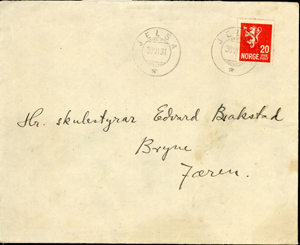 JELSA
20
NORGE
Hr. skulestyrar Edvard Brakstad
Bryne
Jæren.